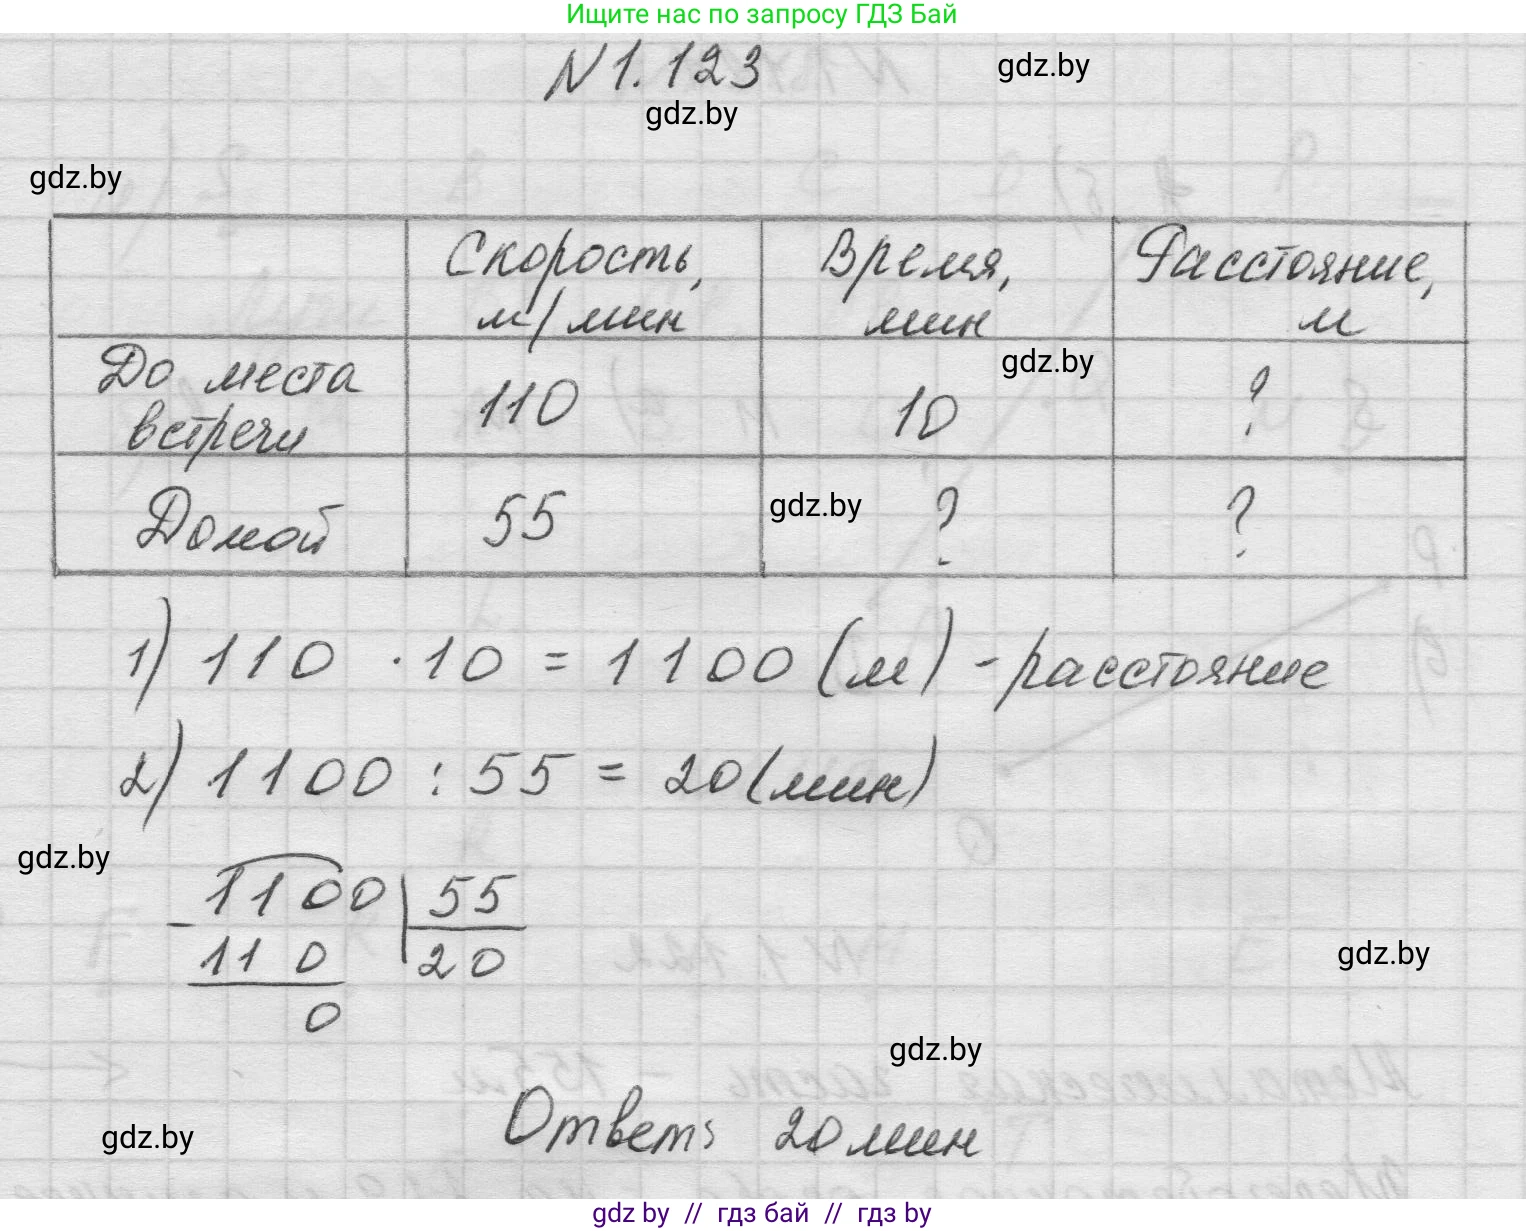 Ищите нас по запросу ГДЗ Бай
N 1.123
gdz.by
gdz.by
gdz.by
Скорость, м/мин
Время, мин
Расстояние, м
До места встречи
110
10
?
gdz.by
Домой
55
?
?
gdz.by
1) 110 · 10 = 1100 (м) - расстояние
2) 1100 : 55 = 20 (мин)
gdz.by
1100 55
- 110 20
0
gdz.by
gdz.by
Ответ: 20 мин
gdz.by
gdz by // гдз бай // гдз by